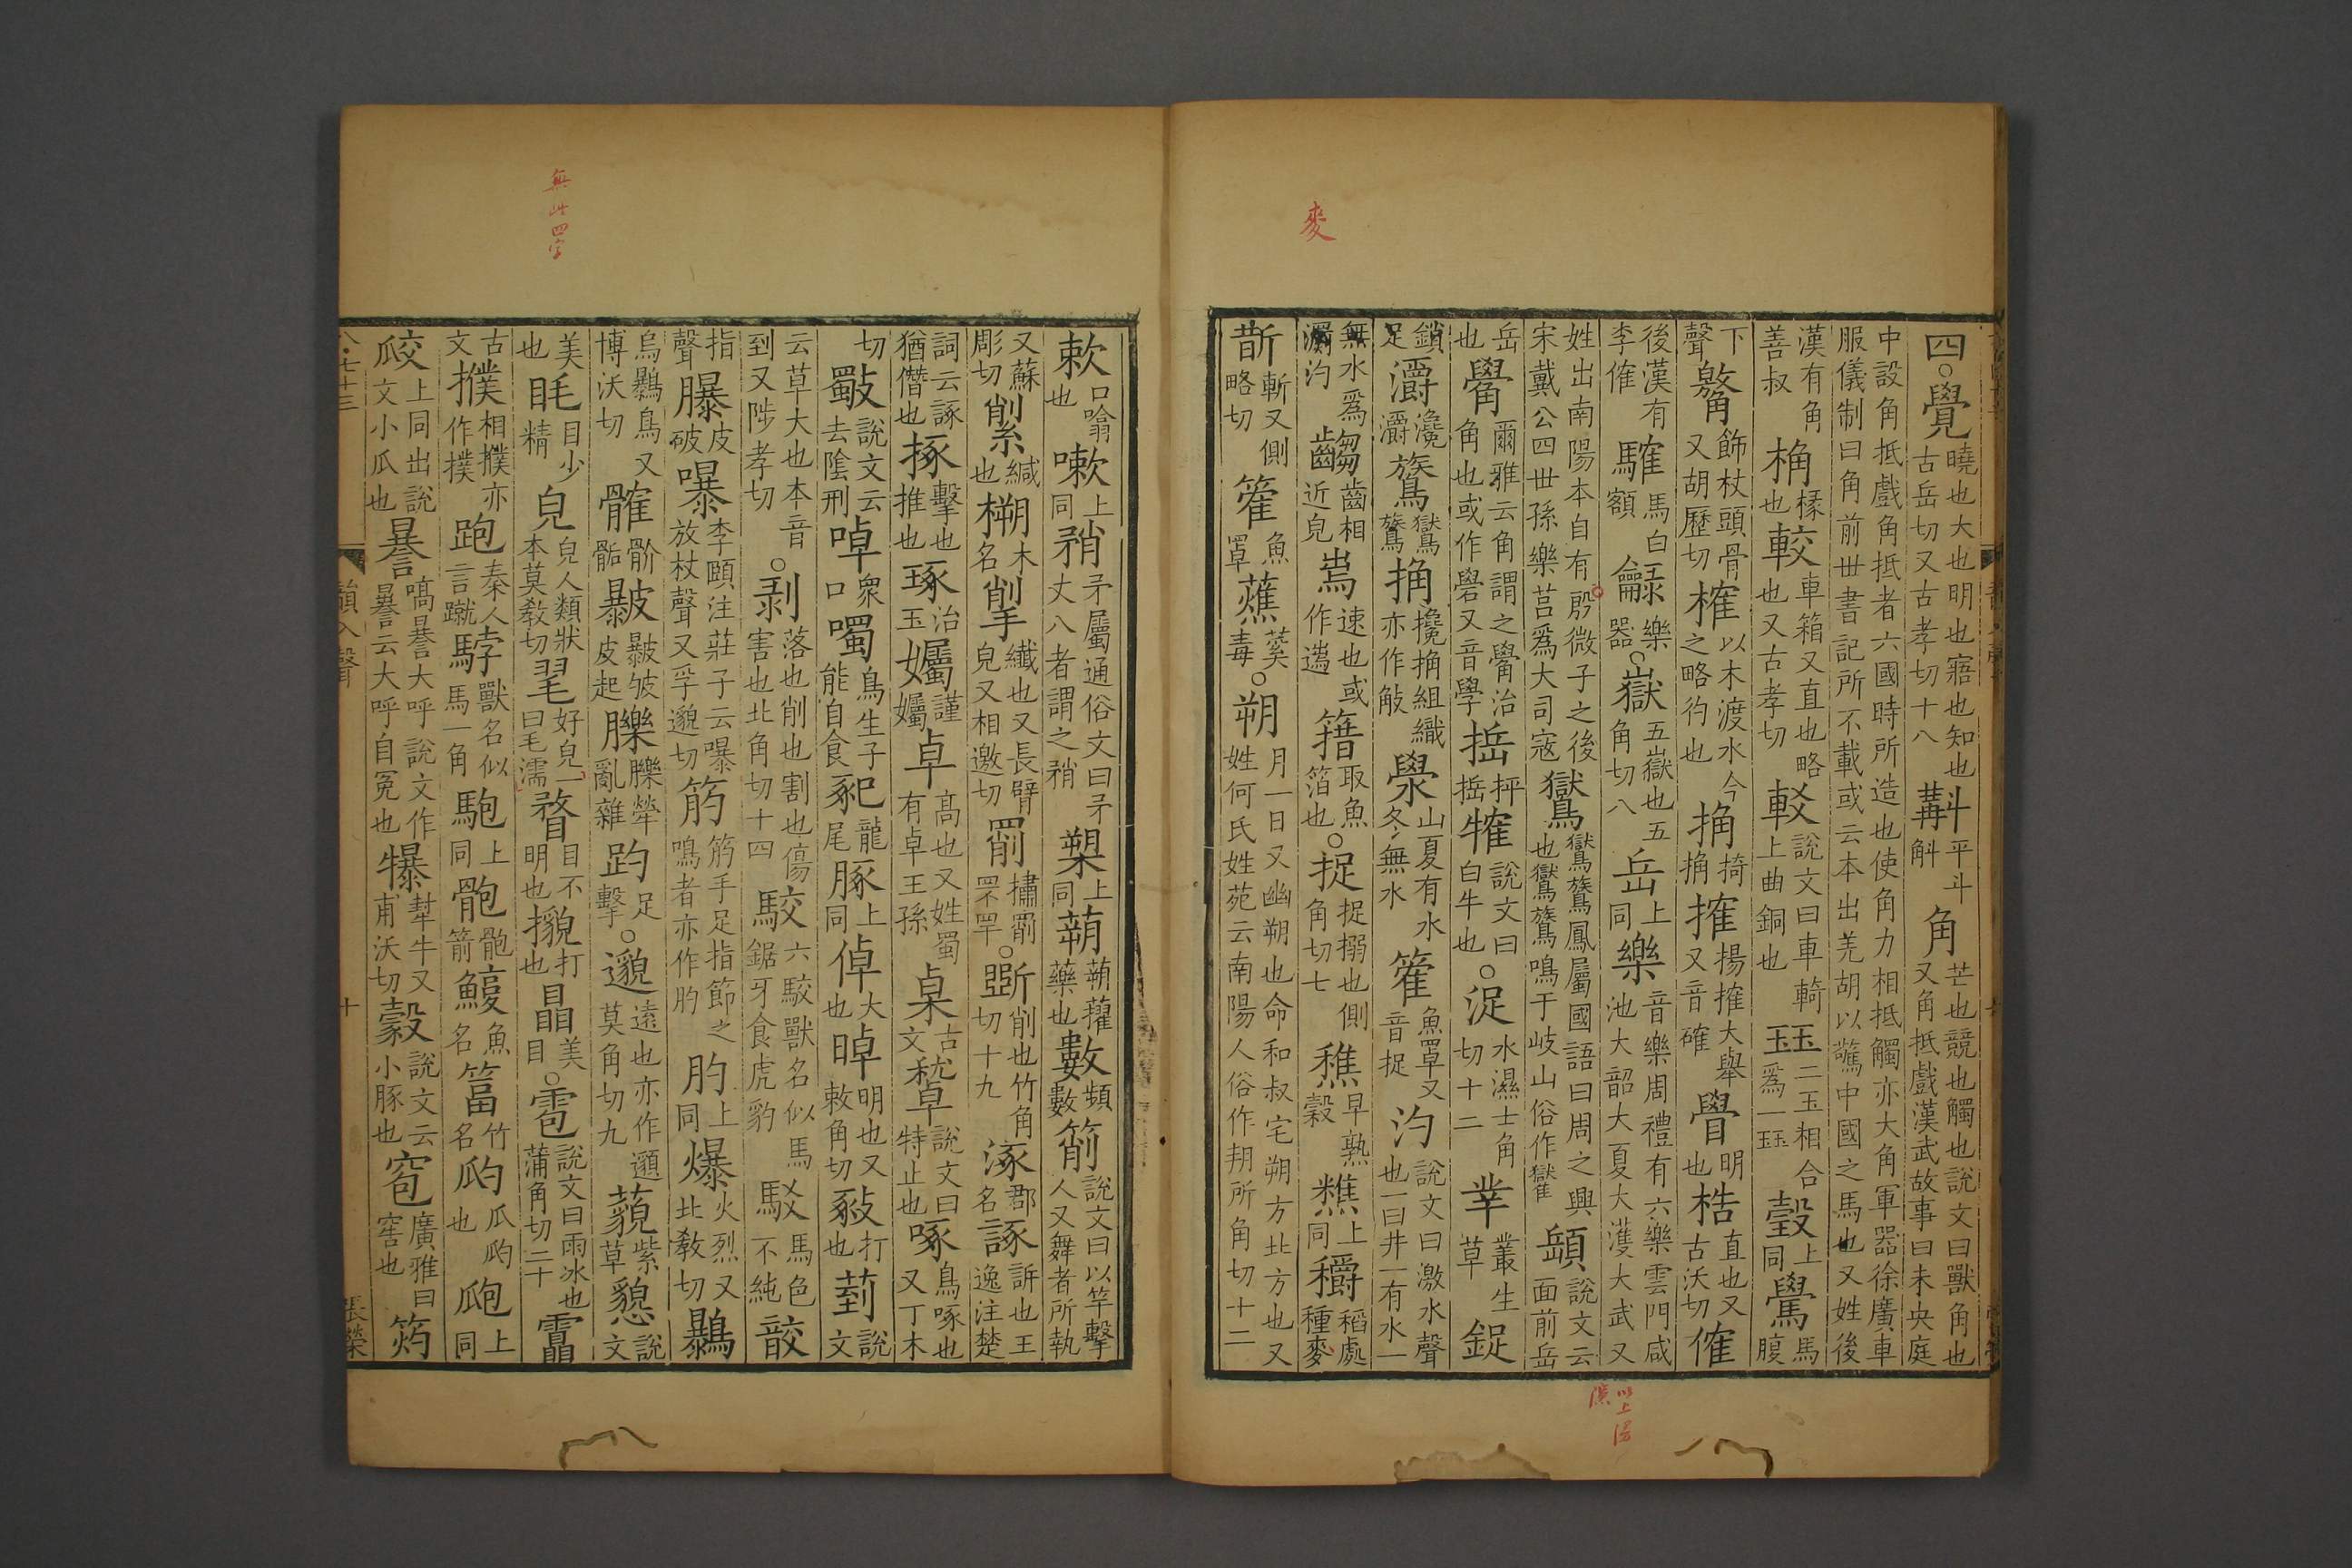 四。覺曉也大也明也寤也知也古岳切又古孝切十八斠平斗斛角芒也競也觸也說文曰獸角也又角抵戲漢武故事曰未央庭
中設角抵戲角抵者六國時所造也使角力相抵觸亦大角軍器徐廣車服儀制曰角前世書記所不載或云本出羌胡以驚中國之馬也又姓後
漢有角善叔桷椽也較車箱又直也略也又古孝切䡈說文曰車輢上曲銅也玨二玉相合為一玨瑴上同鷽馬腹
下聲觻飾杖頭骨又胡歷切榷以木渡水今之略彴也捔掎捔搉揚搉大舉又音確覺明也梏直也又古沃切傕
後漢有李傕䮤馬白額龣樂器。嶽五嶽也五角切八岳上同樂音樂周禮有六樂雲門咸池大韶大夏大濩大武又
姓出南陽本自有殷微子之後宋戴公四世孫樂莒為大司寇鸑鸑鷟鳳屬國語曰周之興也鸑鷟鳴于岐山俗作𤢲頣說文云面前岳
岳也觷爾雅云角謂之觷治角也或作礐又音學捳抨捳㹊說文曰白牛也。浞水濕士角切十二丵叢生草鋜
鎖足灂瀺灂鷟鸑鷟捔攙捔組織亦作㪬澩山夏有水冬無水籗魚罩又音捉汋說文曰激水聲也一曰井一有水一
無水為瀱汋齺齒相近皃嵩速也或作遄籍取魚箔也。捉捉搦也側角切七穛早熟穀糕上同穱稻處種麥
斮斬又側略切籗魚罩蕉蒵毒。朔月一日又幽朔也命和叔宅朔方北方也又姓何氏姓苑云南陽人俗作朔所角切十二
欶口噏也嗽上同矟矛屬通俗文曰矛丈八者謂之矟槊上同蒴蒴藋藥也數頻數箾說文曰以竿擊人又舞者所執
又蘇彫切䌃緘也槊木名揱纖也又長臂皃又相邀切䍁擉䍁罘罕。斲削也竹角切十九涿郡名諑訴也王逸注楚
詞云諑猶僭也椓擊也推也琢治玉孎謹孎卓高也又姓蜀有卓王孫㲋古文𥡦說文曰特止也啄鳥啄也又丁木
切斀說文云去陰刑啅眾口噣鳥生子能自食豝龍尾豚上同倬大也晫明也又敕角切㱾打也菿說文
云草大也本音到又陟孝切。剝落也削也割也傷害也北角切十四駮六駮獸名似馬鋸牙食虎豹駁馬色不純䯨
指聲㬥皮破嚗李頤注莊子云嚗放杖聲又孚邈切筋筋手足指節之鳴者亦作肑肑上同爆火烈又北教切䴌
烏䴌鳥又博沃切髉骱骺皸皺皮起皮起犖䑇犖亂雜趵足擊。邈遠也亦作邈莫角切九藐紫草懇說文
美也眊目少精皃皃人類狀本莫教切毣好皃一曰毛濡瞀目不明也㩘打也眳美目。雹說文曰雨冰也蒲角切二十䨔
古文撲相撲亦作撲跑秦人言蹴䮀獸名似馬一角駂上同骲骲箭鰒魚名䈏竹名瓝瓜瓝也瓟上同
㼎上同出說文小瓜也暴嗃暴大呼說文作暴云大呼自冤也犦犎牛又甫沃切㺉說文云小豚也窇廣雅曰窖也筠
麥
無此四字
以上
張榮